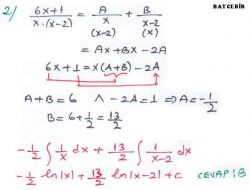 BAYCEBİR
2) (6x+1)/(x.(x-2)) = A/x + B/(x-2)
(x-2) (x)
= Ax+Bx-2A
6x+1 = x(A+B)-2A
A+B=6 ∧ -2A=1 ⇒ A=-1/2
B=6+1/2=13/2
-1/2 ∫ 1/x dx + 13/2 ∫ 1/(x-2) dx
-1/2 ln|x| + 13/2 ln|x-2| + c CEVAP:B